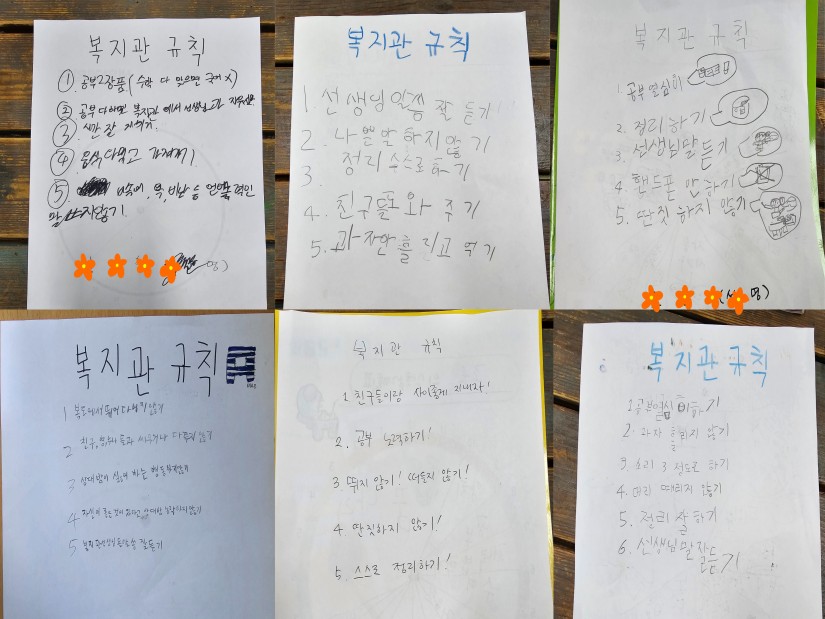 복지관 규칙
① 공부2장품(수학 다 있으면 국어 X)
② 공부 다하면 복지관에서 선생님과
③ 시간 잘 지키기
④ 음식 다먹고
⑤ 욕, 비난 등 언어폭력인
말 쓰지않기
명)
복지관 규칙
1. 선생님 말씀 잘 듣기
2. 나쁜말 하지않기
3. 정리 스스로 하기
4. 친구들 도와 주기
5. 과자 안 흘리고 먹기
복지관 규칙
1. 공부 열심히
2. 정리하기
3. 선생님말 듣기
4. 핸드폰 안하기
5. 딴짓 하지 않기
명)
복지관 규칙
1 복도에서
2 친구, 싸우거나 다투지 않기
3 상대방이 싫어 하는 행동
4
5 잘듣기
복지관 규칙
1. 친구들이랑 사이좋게 지내자!
2. 공부 노력하기!
3 뛰지 않기! 떠들지 않기!
4. 딴짓하지 않기!
5. 스스로 정리하기!
복지관 규칙
1. 공부열심히하기
2. 과자 흘리지 않기
3 소리 3 정도로 하기
4. 머리 때리지 않기
5. 정리 잘 하기
6. 선생님말 잘 듣기